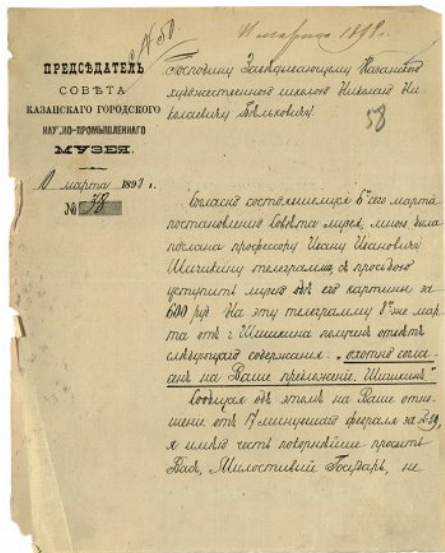 № 50.
11 марта 1898 г.
ПРЕДСѢДАТЕЛЬ
СОВѢТА
КАЗАНСКАГО ГОРОДСКОГО
НАУЧНО-ПРОМЫШЛЕННАГО
МУЗЕЯ.
марта 1897 г.
№ 38
Господину Завѣдывающему Казанской
художественной школою Николаю Ни-
колаевичу Бѣльковичу.
58
Согласно состоявшемуся 6го сего марта
постановленію Совѣта музея, мною была
послана профессору Ивану Ивановичу
Шишкину телеграмма, съ просьбою
уступить музею обѣ его картины за
600 руб. На эту телеграмму 8го же мар-
та отъ г. Шишкина полученъ отвѣтъ
слѣдующаго содержанія: „охотно согла-
сенъ на Ваше предложеніе. Шишкинъ."
Сообщая объ этомъ на Ваше отно-
шеніе отъ 17 минувшаго февраля за № 39,
я имѣю честь покорнѣйше просить
Васъ, Милостивый Государь, не